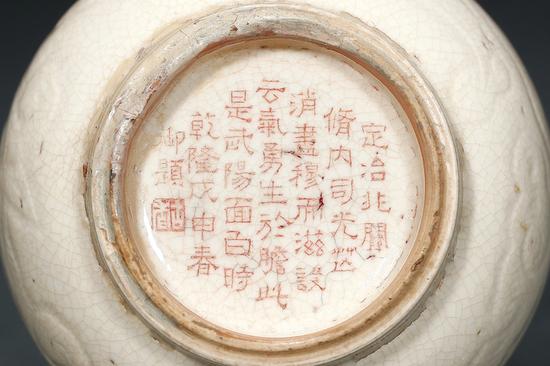 定冶北關
脩内司光芒
消盡穆而滋設
云氣勇生於膽此
是武陽面白時
乾隆戊申春
御題